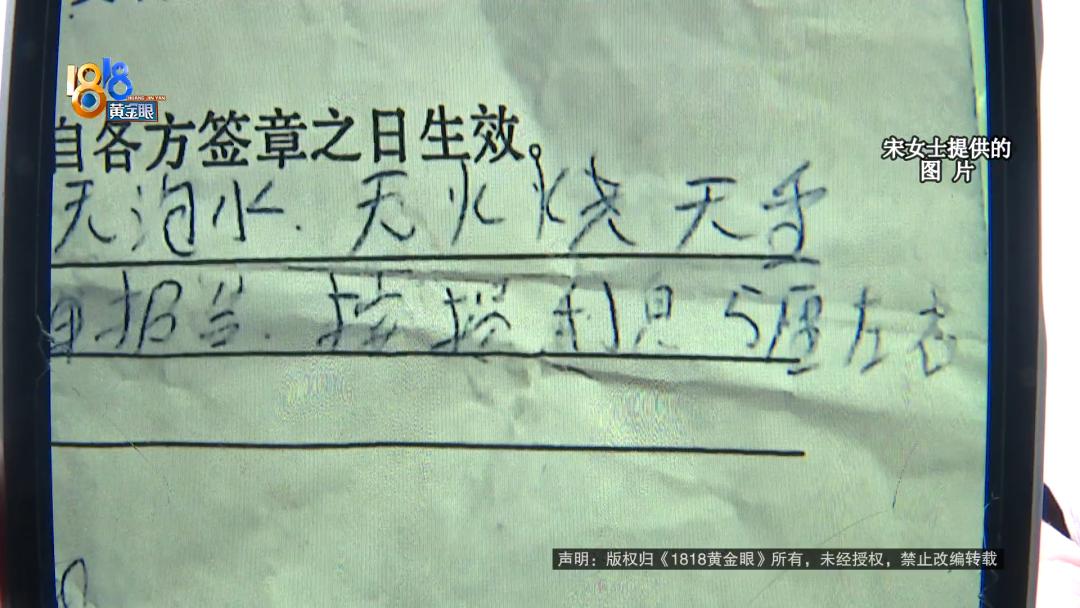 1818
HUANG JIN YAN
黄金眼
自各方签章之日生效。
宋女士提供的
图片
无泡水.无火烧 无重
担 按揭利息5厘左右
声明：版权归《1818黄金眼》所有，未经授权，禁止改编转载